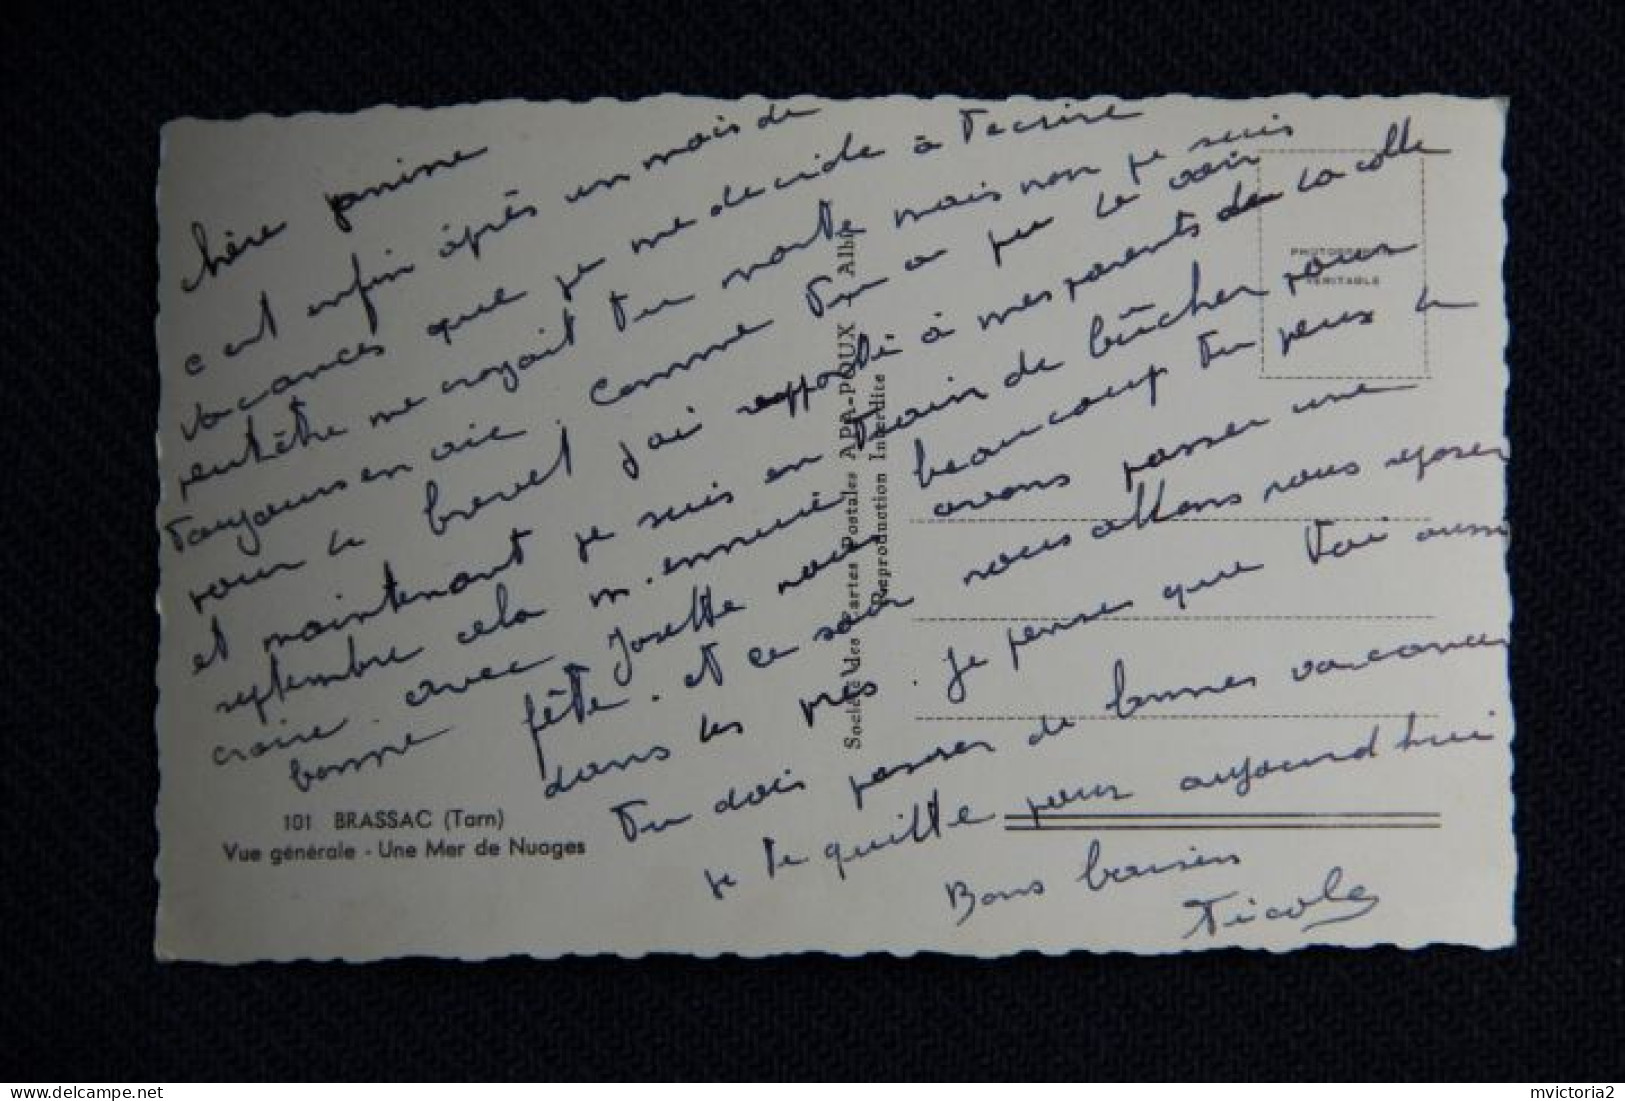 chère janine
c'est enfin après un mois de
vacances que je me decide à t'ecrire
peut être me croyait tu morte mais non je suis
toujours en vie. Comme tu a pu le voir
pour le brevet j'ai rapporté à mes parents de la colle
et maintenant je suis en train de bûcher pour
septembre cela m'ennuie beaucoup tu peux le
croire avec Josette nous avons passer une
bonne fête. et ce soir nous allons nous reposer
dans les prés. Je pense que toi aussi
tu dois passer de bonnes vacances
je te quitte pour aujourd'hui
Bons baisers
Nicole
101 BRASSAC (Tarn)
Vue générale - Une Mer de Nuages
Société des Cartes Postales APA-POUX - Albi
Reproduction Interdite
PHOTOGRAPHIE
VÉRITABLE
mvictoria2